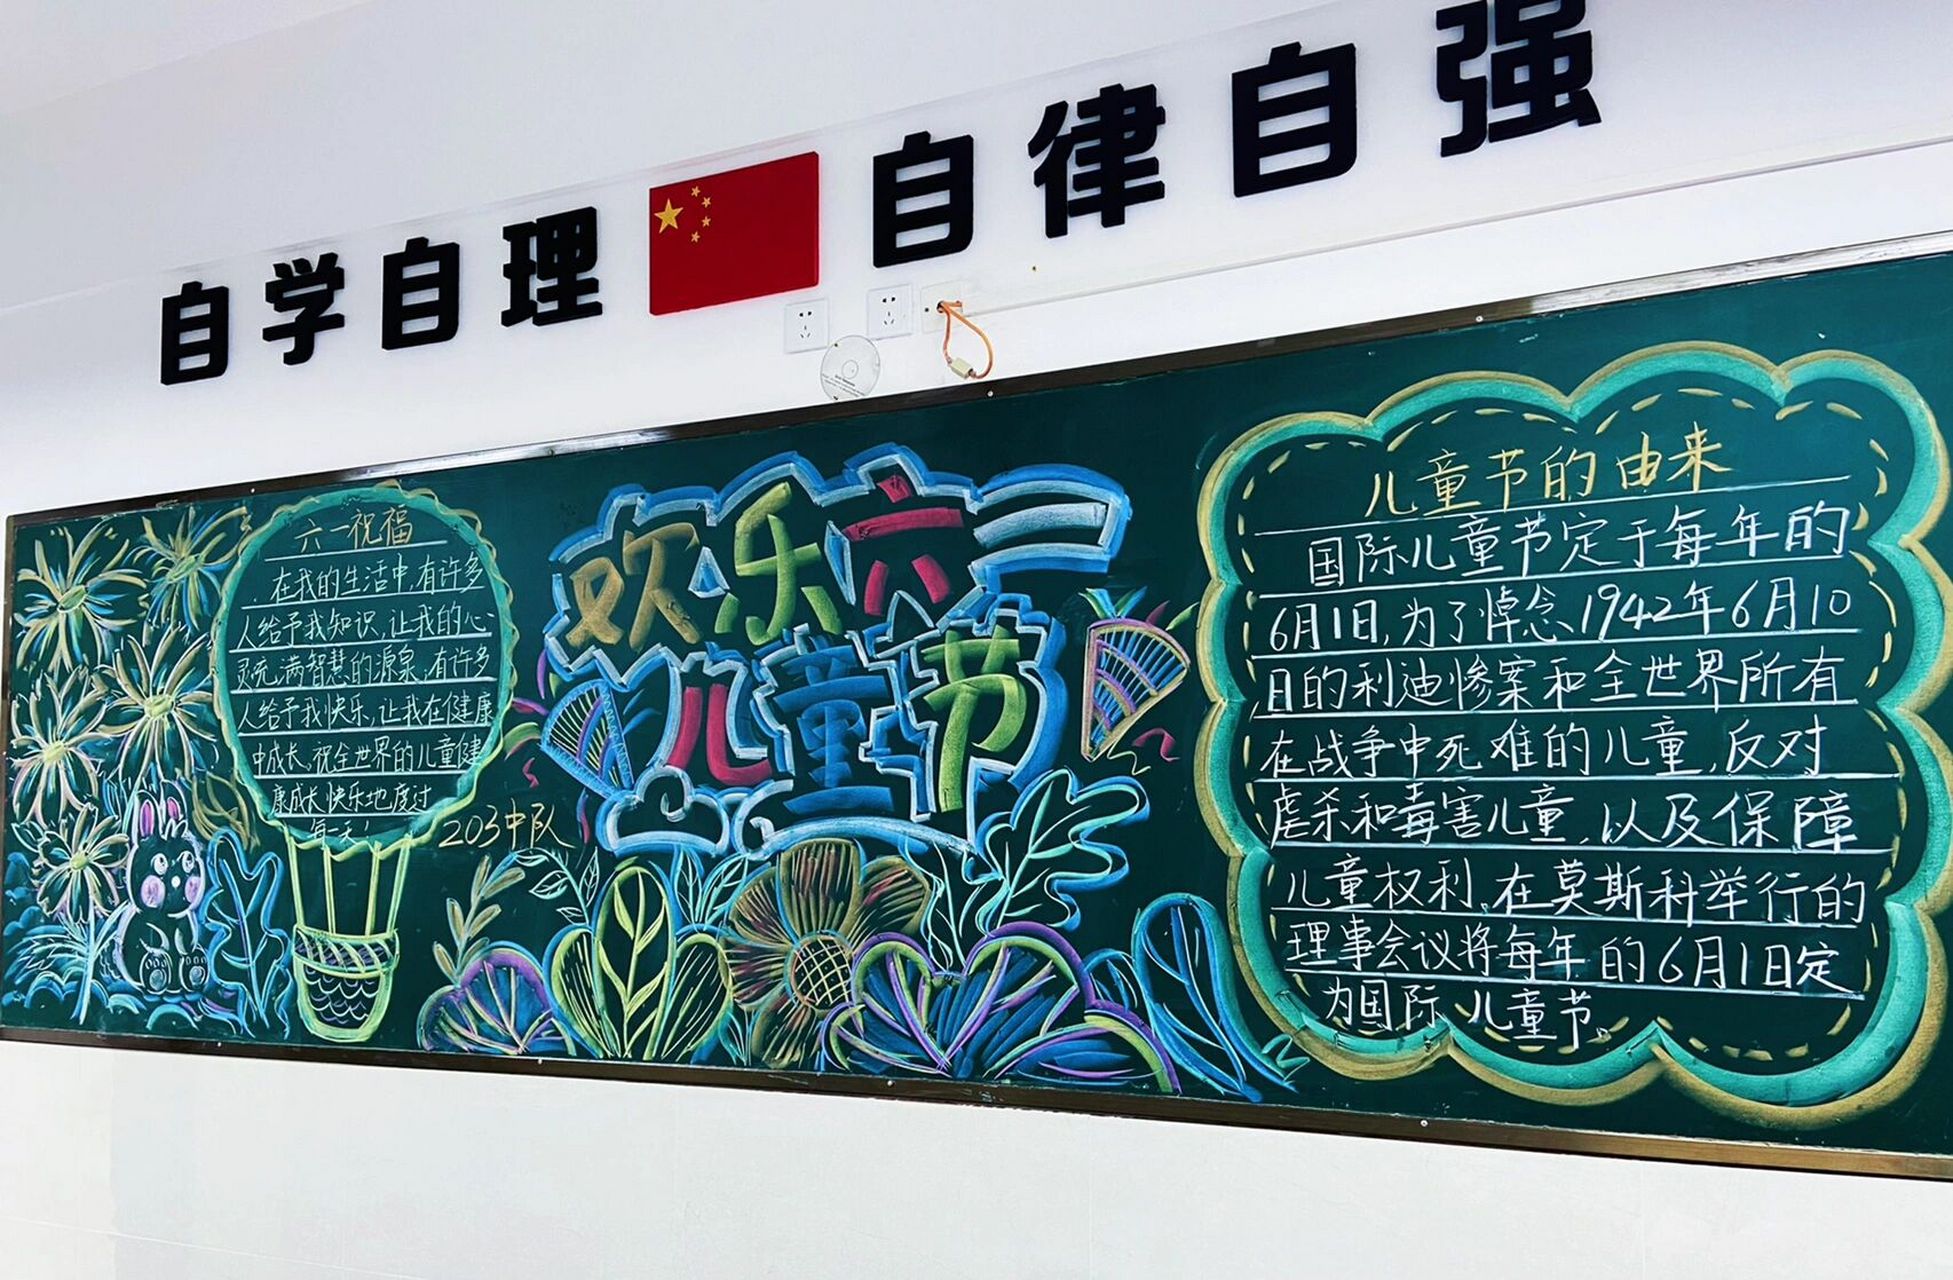 自学自理 自律自强
六一祝福
在我的生活中,有许多
人给予我知识,让我的心
灵充满智慧的源泉,有许多
人给予我快乐,让我在健康
中成长。祝全世界的儿童健
康成长快乐地度过
每一天!
203中队
欢乐六一
儿童节
儿童节的由来
国际儿童节定于每年的
6月1日,为了悼念1942年6月10
日的利迪惨案和全世界所有
在战争中死难的儿童,反对
虐杀和毒害儿童,以及保障
儿童权利。在莫斯科举行的
理事会议将每年的6月1日定
为国际儿童节。